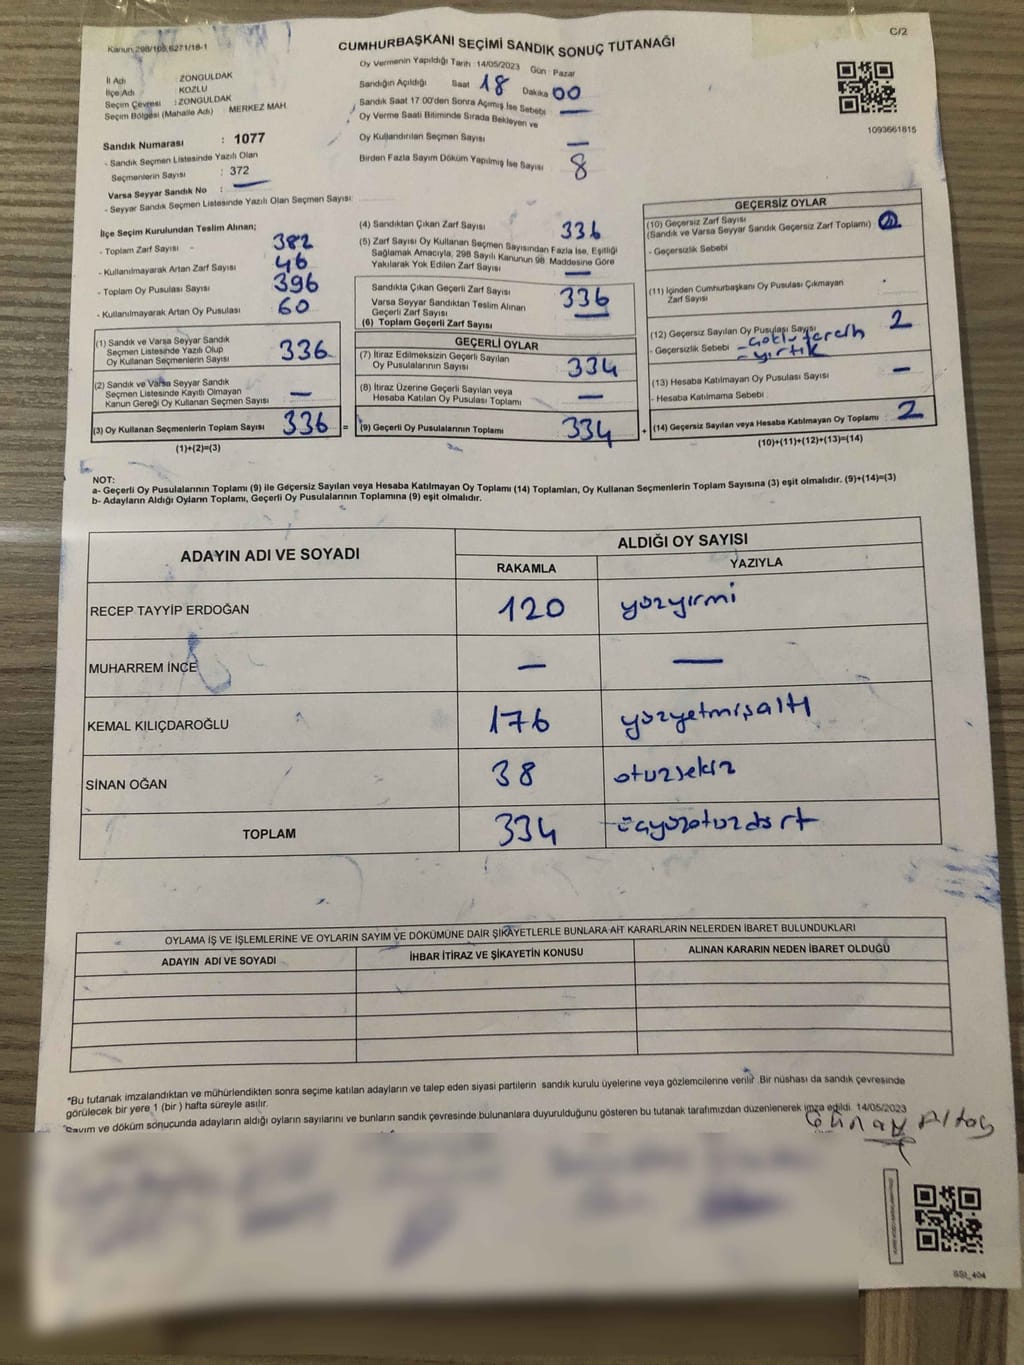 Kanun 298/105,6271/18-1
C/2
CUMHURBAŞKANI SEÇİMİ SANDIK SONUÇ TUTANAĞI
İl Adı : ZONGULDAK
İlçe Adı : KOZLU
Seçim Çevresi : ZONGULDAK
Seçim Bölgesi (Mahalle Adı) : MERKEZ MAH.
Oy Vermenin Yapıldığı Tarih : 14/05/2023 Gün : Pazar
Sandığın Açıldığı Saat 18 Dakika 00
Sandık Saat 17 00'den Sonra Açımış İse Sebebi : —
Oy Verme Saati Bitiminde Sırada Bekleyen ve
Oy Kullandırılan Seçmen Sayısı —
Birden Fazla Sayım Döküm Yapılmış İse Sayısı 8
1093661815
Sandık Numarası : 1077
- Sandık Seçmen Listesinde Yazılı Olan
Seçmenlerin Sayısı : 372
Varsa Seyyar Sandık No : —
- Seyyar Sandık Seçmen Listesinde Yazılı Olan Seçmen Sayısı:
İlçe Seçim Kurulundan Teslim Alınan;
- Toplam Zarf Sayısı 382
- Kullanılmayarak Artan Zarf Sayısı 46
- Toplam Oy Pusulası Sayısı 396
- Kullanılmayarak Artan Oy Pusulası 60
(1) Sandık ve Varsa Seyyar Sandık
Seçmen Listesinde Yazılı Olup
Oy Kullanan Seçmenlerin Sayısı 336
(2) Sandık ve Varsa Seyyar Sandık
Seçmen Listesinde Kayıtlı Olmayan
Kanun Gereği Oy Kullanan Seçmen Sayısı —
(3) Oy Kullanan Seçmenlerin Toplam Sayısı 336 =
(1)+(2)=(3)
(4) Sandıktan Çıkan Zarf Sayısı 336
(5) Zarf Sayısı Oy Kullanan Seçmen Sayısından Fazla İse, Eşitliği
Sağlamak Amacıyla, 298 Sayılı Kanunun 98. Maddesine Göre
Yakılarak Yok Edilen Zarf Sayısı —
Sandıkta Çıkan Geçerli Zarf Sayısı 336
Varsa Seyyar Sandıktan Teslim Alınan
Geçerli Zarf Sayısı —
(6) Toplam Geçerli Zarf Sayısı
GEÇERLİ OYLAR
(7) İtiraz Edilmeksizin Geçerli Sayılan
Oy Pusulalarının Sayısı 334
(8) İtiraz Üzerine Geçerli Sayılan veya
Hesaba Katılan Oy Pusulası Toplamı —
(9) Geçerli Oy Pusulalarının Toplamı 334 +
GEÇERSİZ OYLAR
(10) Geçersiz Zarf Sayısı
(Sandık ve Varsa Seyyar Sandık Geçersiz Zarf Toplamı)
- Geçersizlik Sebebi
(11) İçinden Cumhurbaşkanı Oy Pusulası Çıkmayan
Zarf Sayısı
(12) Geçersiz Sayılan Oy Pusulası Sayısı 2
- Geçersizlik Sebebi - Çoklu tercih
- yırtık
(13) Hesaba Katılmayan Oy Pusulası Sayısı —
- Hesaba Katılmama Sebebi
(14) Geçersiz Sayılan veya Hesaba Katılmayan Oy Toplamı 2
(10)+(11)+(12)+(13)=(14)
NOT:
a- Geçerli Oy Pusulalarının Toplamı (9) ile Geçersiz Sayılan veya Hesaba Katılmayan Oy Toplamı (14) Toplamları, Oy Kullanan Seçmenlerin Toplam Sayısına (3) eşit olmalıdır. (9)+(14)=(3)
b- Adayların Aldığı Oyların Toplamı, Geçerli Oy Pusulalarının Toplamına (9) eşit olmalıdır.
ADAYIN ADI VE SOYADI ALDIĞI OY SAYISI
RAKAMLA YAZIYLA
RECEP TAYYİP ERDOĞAN 120 yüzyirmi
MUHARREM İNCE — —
KEMAL KILIÇDAROĞLU 176 yüzyetmişaltı
SİNAN OĞAN 38 otuzsekiz
TOPLAM 334 üçyüzotuzdört
OYLAMA İŞ VE İŞLEMLERİNE VE OYLARIN SAYIM VE DÖKÜMÜNE DAİR ŞİKAYETLERLE BUNLARA AİT KARARLARIN NELERDEN İBARET BULUNDUKLARI
ADAYIN ADI VE SOYADI İHBAR İTİRAZ VE ŞİKAYETİN KONUSU ALINAN KARARIN NEDEN İBARET OLDUĞU
*Bu tutanak imzalandıktan ve mühürlendikten sonra seçime katılan adayların ve talep eden siyasi partilerin sandık kurulu üyelerine veya gözlemcilerine verilir .Bir nüshası da sandık çevresinde
görülecek bir yere 1 (bir ) hafta süreyle asılır.
*Sayım ve döküm sonucunda adayların aldığı oyların sayılarını ve bunların sandık çevresinde bulunanlara duyurulduğunu gösteren bu tutanak tarafımızdan düzenlenerek imza edildi. 14/05/2023
Günay Altaş
SSI_404